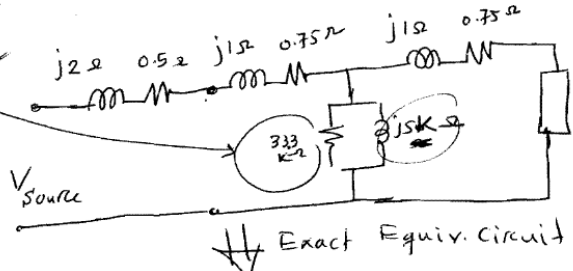 j2Ω 0.5Ω j1Ω 0.75Ω j1Ω 0.75Ω
333 KΩ j5KΩ
V source
Exact Equiv. Circuit